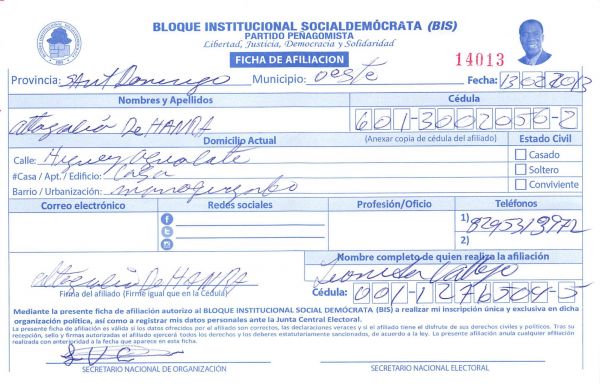 BLOQUE INSTITUCIONAL SOCIALDEMÓCRATA (BIS)
PARTIDO PEÑAGOMISTA
Libertad, Justicia, Democracia y Solidaridad
FICHA DE AFILIACION
14013
Provincia: Sant Domingo Municipio: oeste Fecha: 13/02/2013
Nombres y Apellidos Cédula
De HANRA 601-3002056-2
Domicilio Actual (Anexar copia de cédula del afiliado) Estado Civil
Calle: Casado
#Casa / Apt. / Edificio: Casa Soltero
Barrio / Urbanización: Conviviente
Correo electrónico Redes sociales Profesión/Oficio Teléfonos
1) 8295313972
2)
Nombre completo de quien realiza la afiliación
De HANRA
Firma del afiliado (Firme igual que en la Cédula) Cédula: 001-1276504-5
Mediante la presente ficha de afiliación autorizo al BLOQUE INSTITUCIONAL SOCIAL DEMÓCRATA (BIS) a realizar mi inscripción única y exclusiva en dicha
organización política, así como a registrar mis datos personales ante la Junta Central Electoral.
La presente ficha de afiliación es válida si los datos ofrecidos por el afiliado son correctos, las declaraciones veraces y si el afiliado tiene el disfrute de sus derechos civiles y políticos. Tras su
recepción, sello y firmas autorizadas el afiliado ejercerá todos los derechos y los deberes estatutariamente sancionados, de acuerdo a la ley. Lo presente afiliación anula cualquier afiliación
realizada con anterioridad a la fecha que aparece en esta ficha.
SECRETARIO NACIONAL DE ORGANIZACIÓN SECRETARIO NACIONAL ELECTORAL